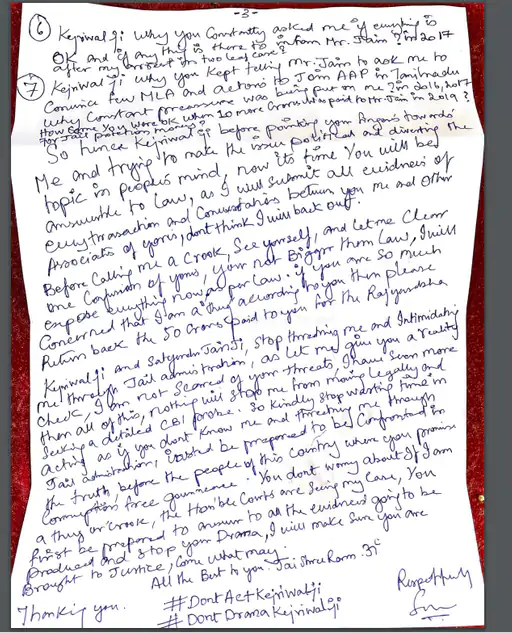 -3-
⑥ Kejriwal Ji why you constantly asked me if everything is
OK and if any thing is there to from Mr. Jain? in 2017
after my arrest in two leaf case?
⑦ Kejriwal Ji why you kept telling Mr. Jain to ask me to
Convince few MLA and actors to Join AAP in Tamilnadu
why Constant pressure was being put on me? in 2016, 2017
How come you were OK when 10 more Crores was paid to Mr Jain in 2019?
for Jail protection money
So hence Kejriwal Ji before pointing your fingers towards
Me and trying to make the issue political and diverting the
topic in peoples mind, now its time You will be
answerable to Law, as I will submit all evidness of
every transaction and Conversations between you me and other
Associates of yours, dont think I will back out.
Before Calling me a Crook, See yourself, and let me Clear
one Confusion of yours, your not Bigger them Law, I will
expose everything now as per Law. if you are so much
Concerned that I am a thug according to you then please
Return back the 50 Crores paid to you for the Rajyasabha
Kejriwal Ji and Satyendar Jain Ji, stop threting me and Intimidating
me through Jail administration, as let me give you a reality
Check, I am not Scared of your threats, I have seen more
them all of this, nothing will stop me from moving legally and
Seeking a detailed CBI probe. So kindly stop wasting time in
acting as if you dont know me and threting me through
Jail administration, be prepared to be Confronted in
the truth before the people of this Country where you promise
Corruption free governence. You dont worry about If I am
a thug or Crook, the Hon'ble Courts are seing my Case, You
first be prepared to answer to all the evidness going to be
produced and stop your Drama, I will make sure you are
Brought to Justice, Come what may.
All the Best to you. Jai Shree Ram.
Thanking you.
Respectfully
#DontActKejriwalji
#DontDramaKejriwalji